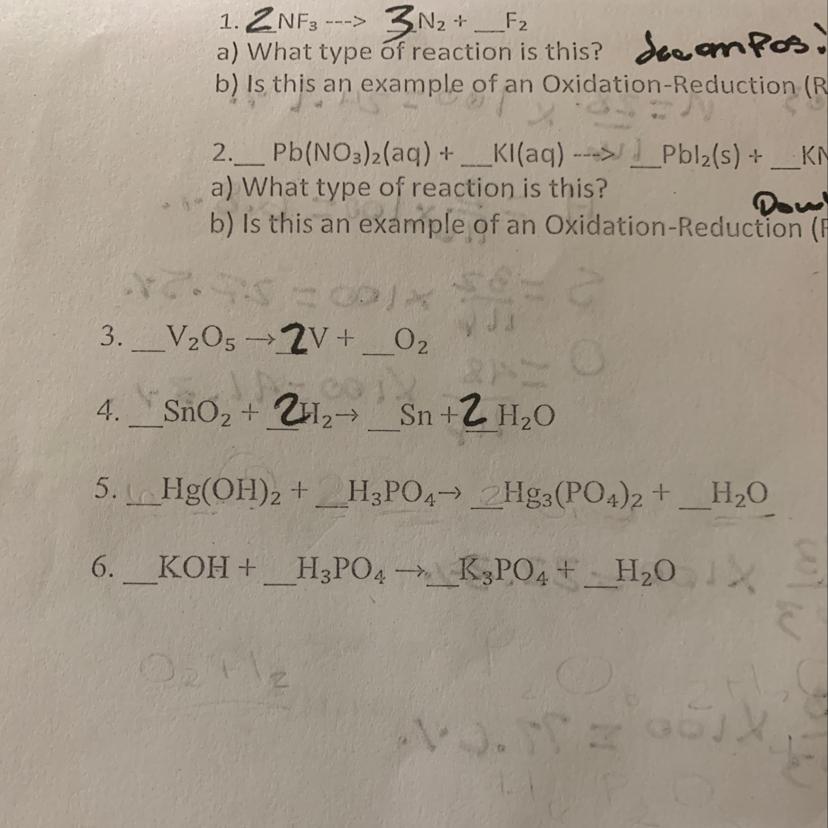 1. 2 NF₃ ---> 3 N₂ + __F₂
a) What type of reaction is this? Decompos
b) Is this an example of an Oxidation-Reduction (R
2.__ Pb(NO₃)₂(aq) + __KI(aq) ---> __PbI₂(s) + __KN
a) What type of reaction is this?
Doub
b) Is this an example of an Oxidation-Reduction (R
3. __V₂O₅ → 2V + __O₂
4. __SnO₂ + 2H₂→ __Sn + 2 H₂O
5. __Hg(OH)₂ + __H₃PO₄→ 2Hg₃(PO₄)₂ + __H₂O
6. __KOH + __H₃PO₄ → __K₃PO₄ + __H₂O